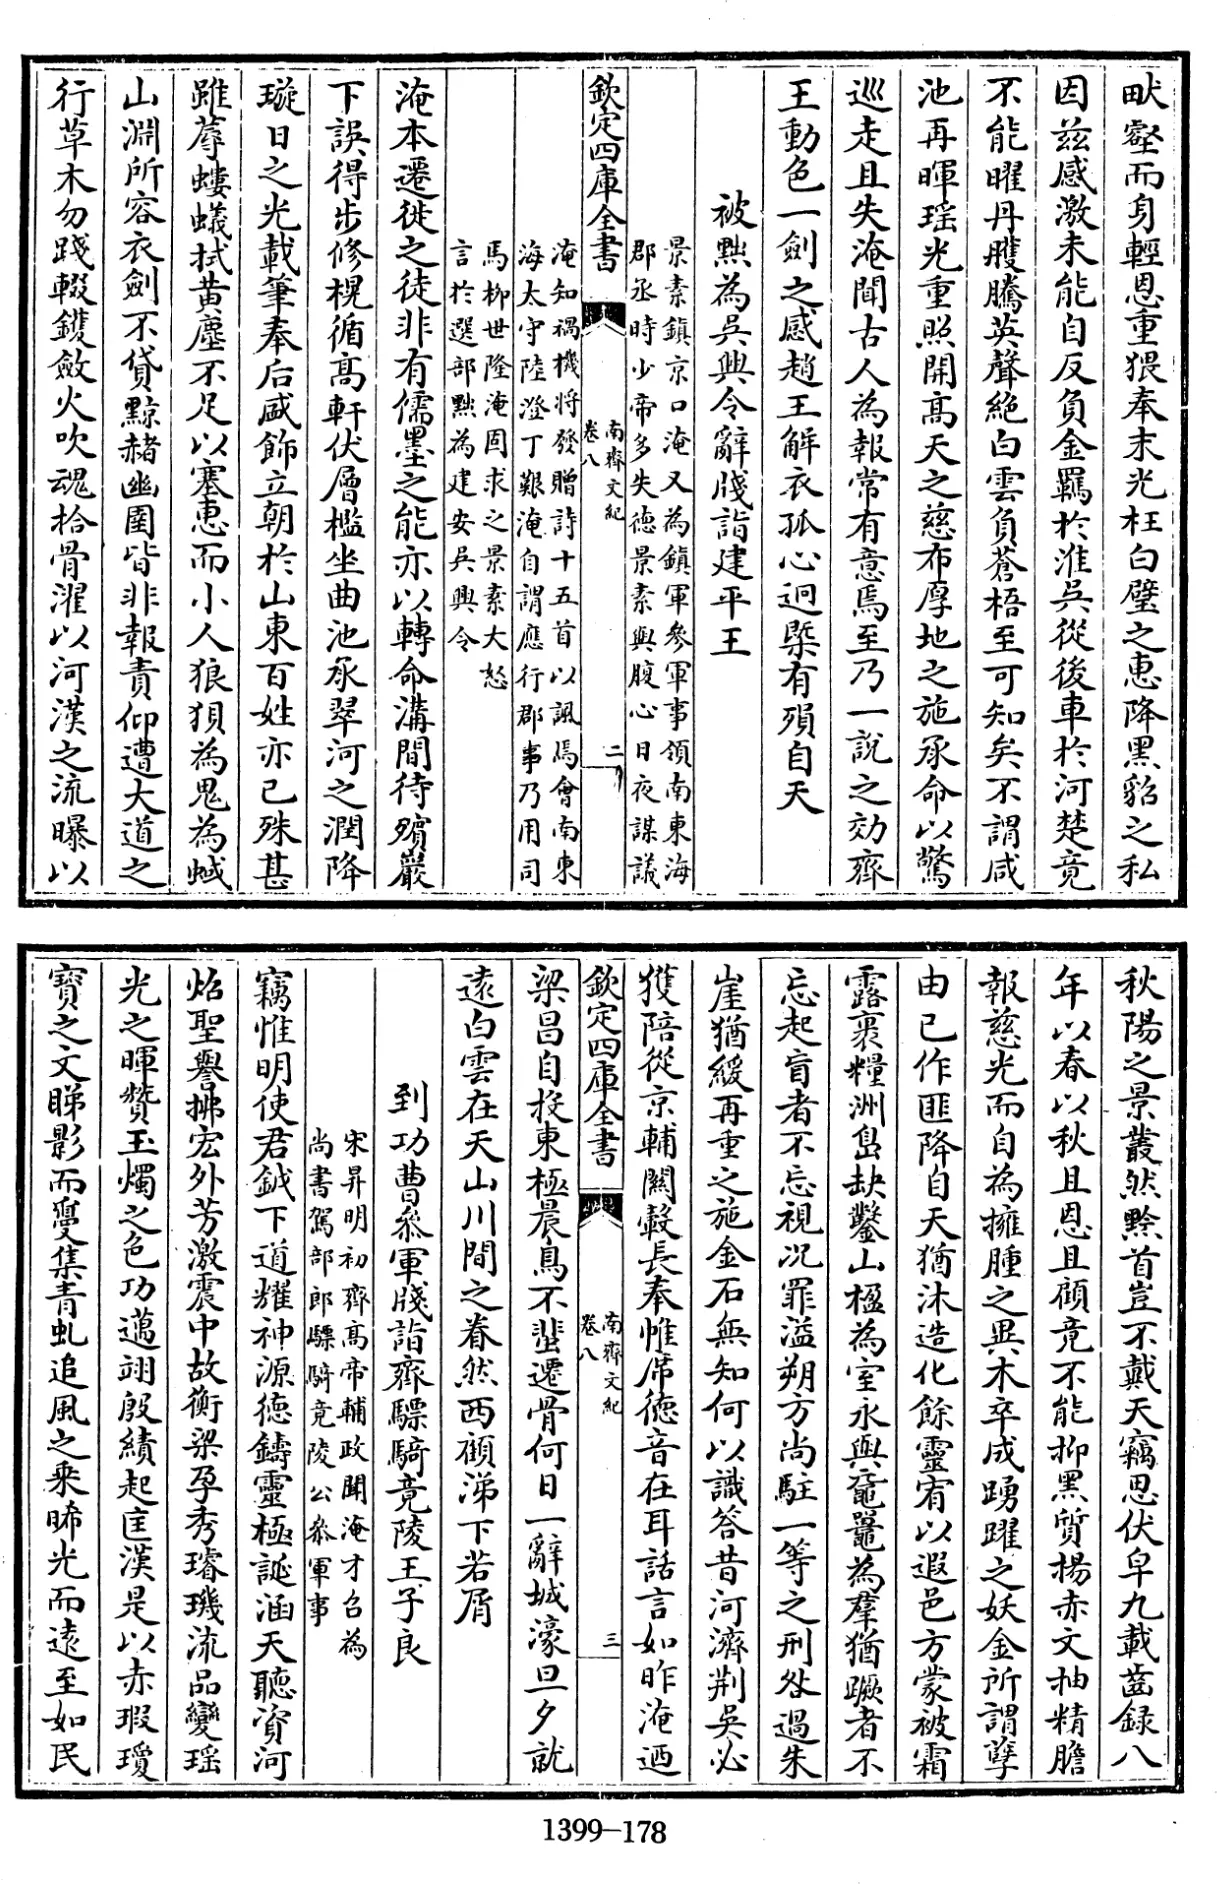 畎壑而身輕恩重猥奉末光枉白璧之惠降黑貂之私
因兹感激未能自反負金羈於淮吳從後車於河楚竟
不能曜丹雘騰英聲絶白雲負蒼梧至可知矣不謂咸
池再暉瑶光重照開髙天之慈布厚地之施承命以驚
巡走且失淹聞古人為報常有意焉至乃一說之効齊
王動色一劍之感趙王解衣孤心迥槩有殞自天
被㸃為吳興令辭牋詣建平王
景素鎮京口淹又為鎮軍參軍事領南東海
郡丞時少帝多失徳景素與腹心日夜謀議
欽定四庫全書
南齊文紀
卷八
二
淹知禍機將發贈詩十五首以諷焉會南東
海太守陸澄丁艱淹自謂應行郡事乃用司
馬柳世隆淹固求之景素大怒
言於選部㸃為建安吳興令
淹本遷徙之徒非有儒墨之能亦以轉命溝間待殯巖
下誤得步修榥循髙軒伏層檻坐曲池承翠河之潤降
璇日之光載筆奉后咸飾立朝於山東百姓亦已殊甚
雖蓐螻蟻拭黄塵不足以塞恵而小人狼狽為鬼為蜮
山淵所容衣劍不貸黥赭幽圄皆非報責仰遭大道之
行草木勿踐輟鑊斂火吹魂拾骨濯以河漢之流曝以
秋陽之景叢然黔首豈不戴天竊思伏皁九載齒録八
年以春以秋且恩且顧竟不能抑黑質揚赤文抽精膽
報慈光而自為擁腫之異木卒成踴躍之妖金所謂孽
由已作匪降自天猶沐造化餘靈宥以遐邑方蒙被霜
露裹糧洲島缺鑿山楹為室永與黿鼉為羣猶蹶者不
忘起盲者不忘視况罪溢朔方尚駐一等之刑咎過朱
崖猶緩再重之施金石無知何以識答昔河濟荆吳必
獲陪從京輔闗轂長奉帷席徳音在耳話言如昨淹迺
欽定四庫全書
南齊文紀
卷八
三
梁昌自投東極晨鳥不蜚遷骨何日一辭城濠旦夕就
逺白雲在天山川間之眷然西顧涕下若屑
到功曹叅軍牋詣齊驃騎竟陵王子良
宋昇明初齊髙帝輔政聞淹才召為
尚書駕部郎驃騎竟陵公叅軍事
竊惟明使君鉞下道耀神源徳鑄靈極誕涵天聽資河
炤聖譽拂宏外芳激震中故衡梁孕秀璿璣流品變瑶
光之暉贊玉燭之色功邁翊殷績起匡漢是以赤瑕瓊
寳之文睇影而蔓集青虬追風之乘晞光而逺至如民
1399-178